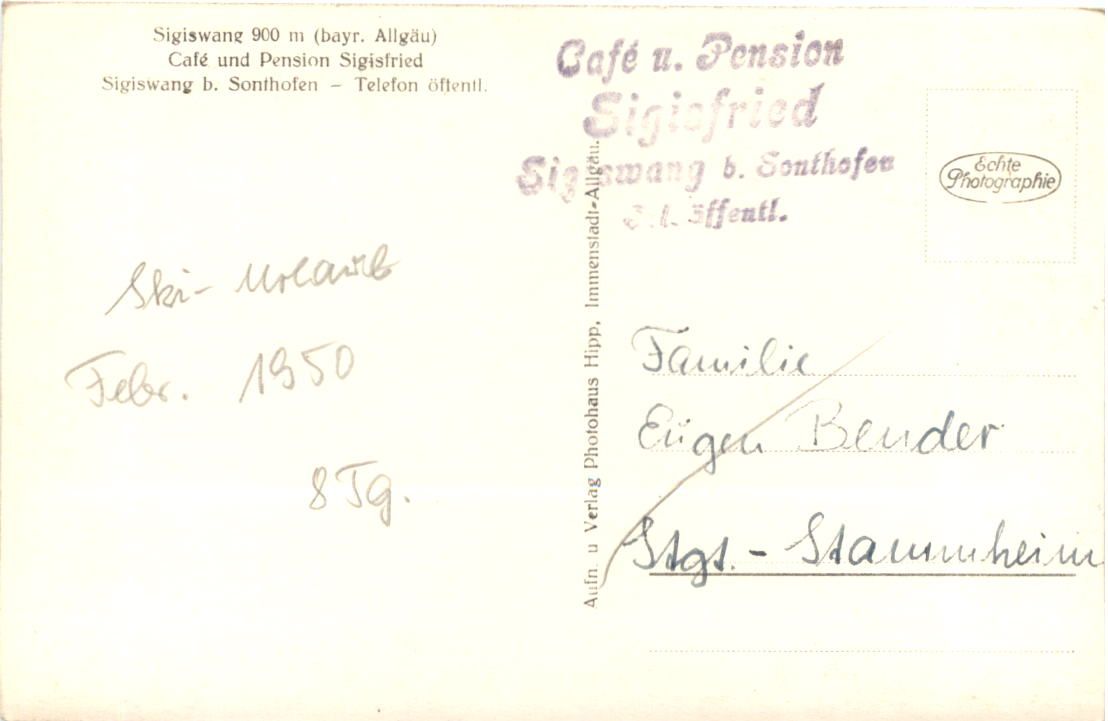 Sigiswang 900 m (bayr. Allgäu)
Café und Pension Sigisfried
Sigiswang b. Sonthofen – Telefon öffentl.
Café u. Pension
Sigisfried
Sigiswang b. Sonthofen
öffentl.
Echte
Photographie
Ski-Urlaub
Febr. 1950
8 Tg.
Aufn. u Verlag Photohaus Hipp, Immenstadt-Allgäu.
Familie
Eugen Bender
Stgt.- Stammheim